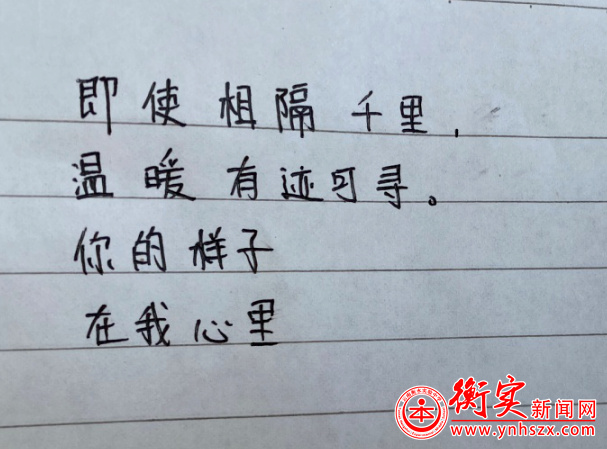 即使相隔千里,
温暖有迹可寻。
你的样子
在我心里
衡实新闻网
www.ynhszx.com